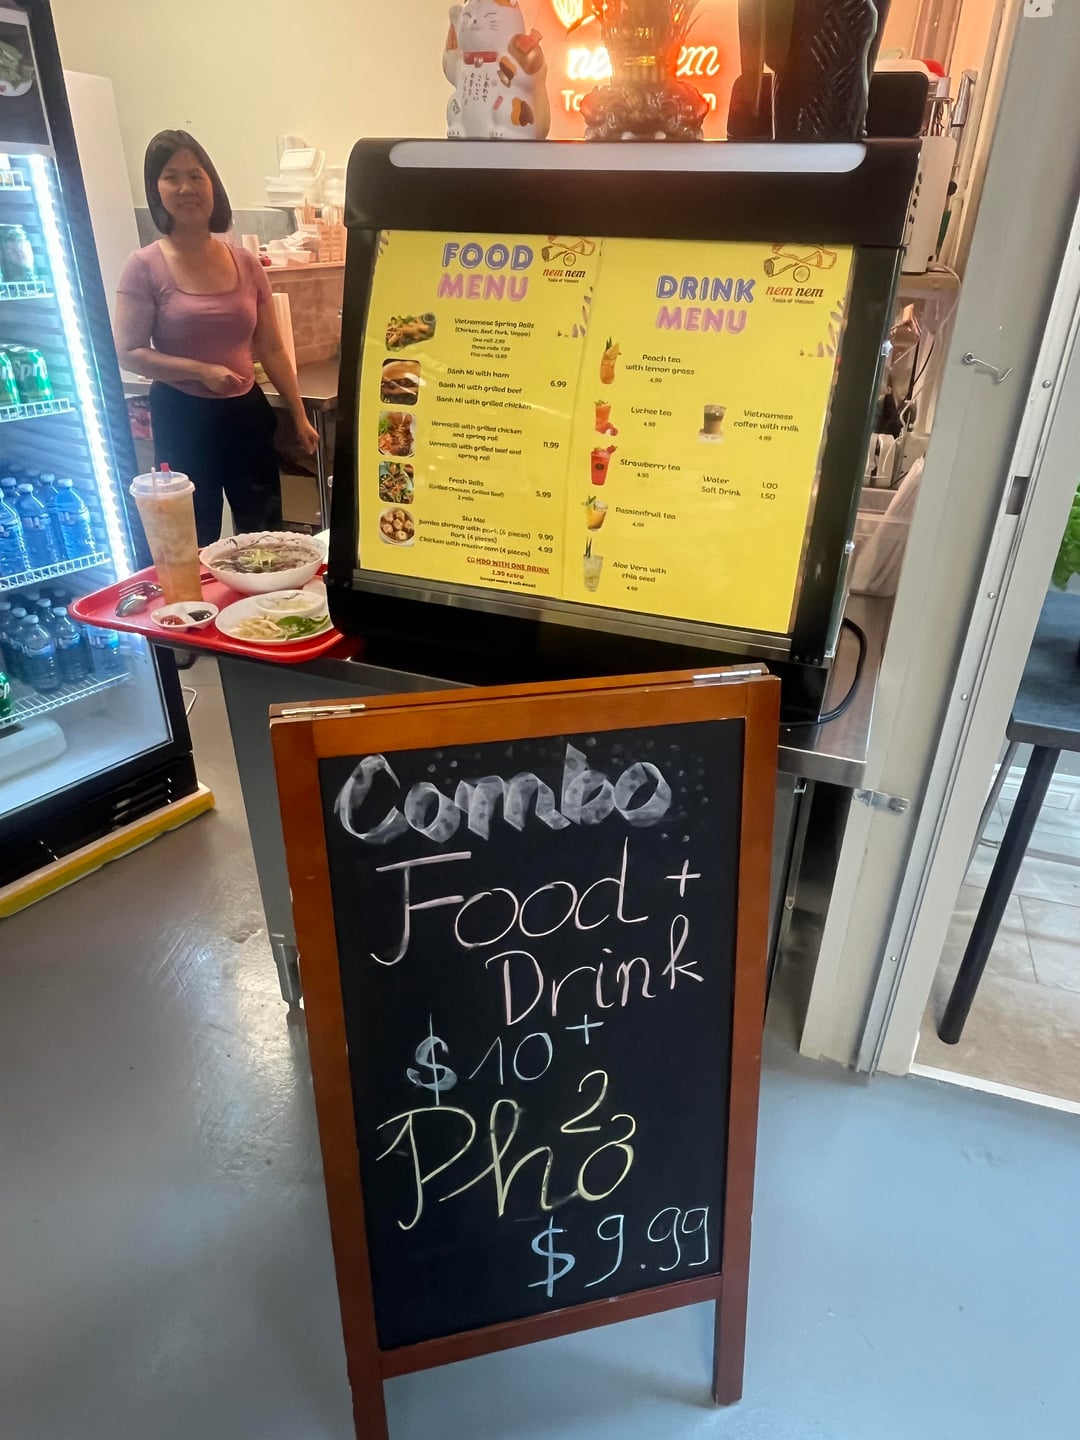 nem nem
FOOD
MENU
nem nem
Taste of Vietnam
Vietnamese Spring Rolls
(Chicken, Beef, Pork, Veggie)
One roll: 2.99
Three rolls: 7.99
Five rolls: 13.99
Bánh Mì with Ham
Bánh Mì with grilled beef 6.99
Bánh Mì with grilled chicken
Vermicilli with grilled chicken
and spring roll
Vermicilli with grilled beef and 11.99
spring roll
Fresh Rolls
(Grilled Chicken, Grilled Beef) 5.99
2 rolls
Siu Mai
Jumbo shrimp with pork (6 pieces) 9.99
Pork (4 pieces)
Chicken with mushroom (4 pieces) 4.99
COMBO WITH ONE DRINK
2.99 extra
(except water & soft drink)
DRINK
MENU
nem nem
Taste of Vietnam
Peach tea
with lemon grass
4.99
Lychee tea
4.99
Vietnamese
coffee with milk
4.99
Strawberry tea
4.99
Water 1.00
Soft Drink 1.50
Passionfruit tea
4.99
Aloe Vera with
chia seed
4.99
Combo
Food +
Drink
$10+
Phở
$9.99